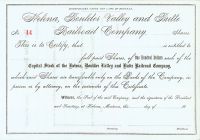 INCORPORATED UNDER THE LAWS OF MONTANA.
Helena, Boulder Valley and Butte
Railroad Company
No. 44 Shares
This is to Certify, that is entitled to
full paid Shares, of One Hundred Dollars each of the
Capital Stock of the Helena, Boulder Valley and Butte Railroad Company,
which said Shares are transferable only on the Books of the Company, in
person or by attorney, on the surrender of this Certificate.
Witness, the Seal of the said Company, and the signatures of the President
and Secretary at Helena, Montana, this day of 18